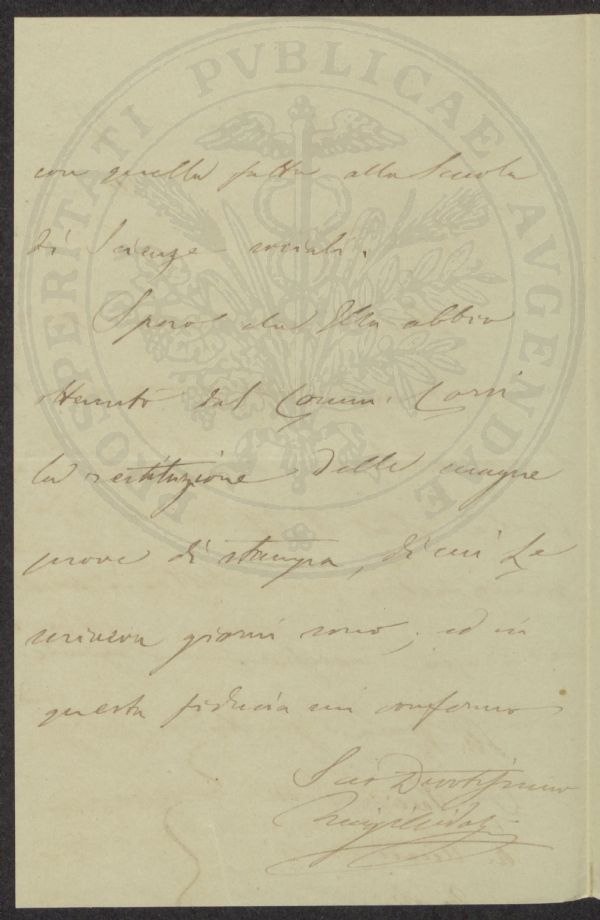 PROSPERITATI PVBLICAE AVGENDAE
con quella fatta alla Scuola
di Scienze sociali.
Spero che Ella abbia
ottenuto dal Comm. Corsi
la restituzione delle
prove di stampa, di cui Le
scriveva giorni sono; ed in
questa fiducia mi confermo
Suo Devotissimo